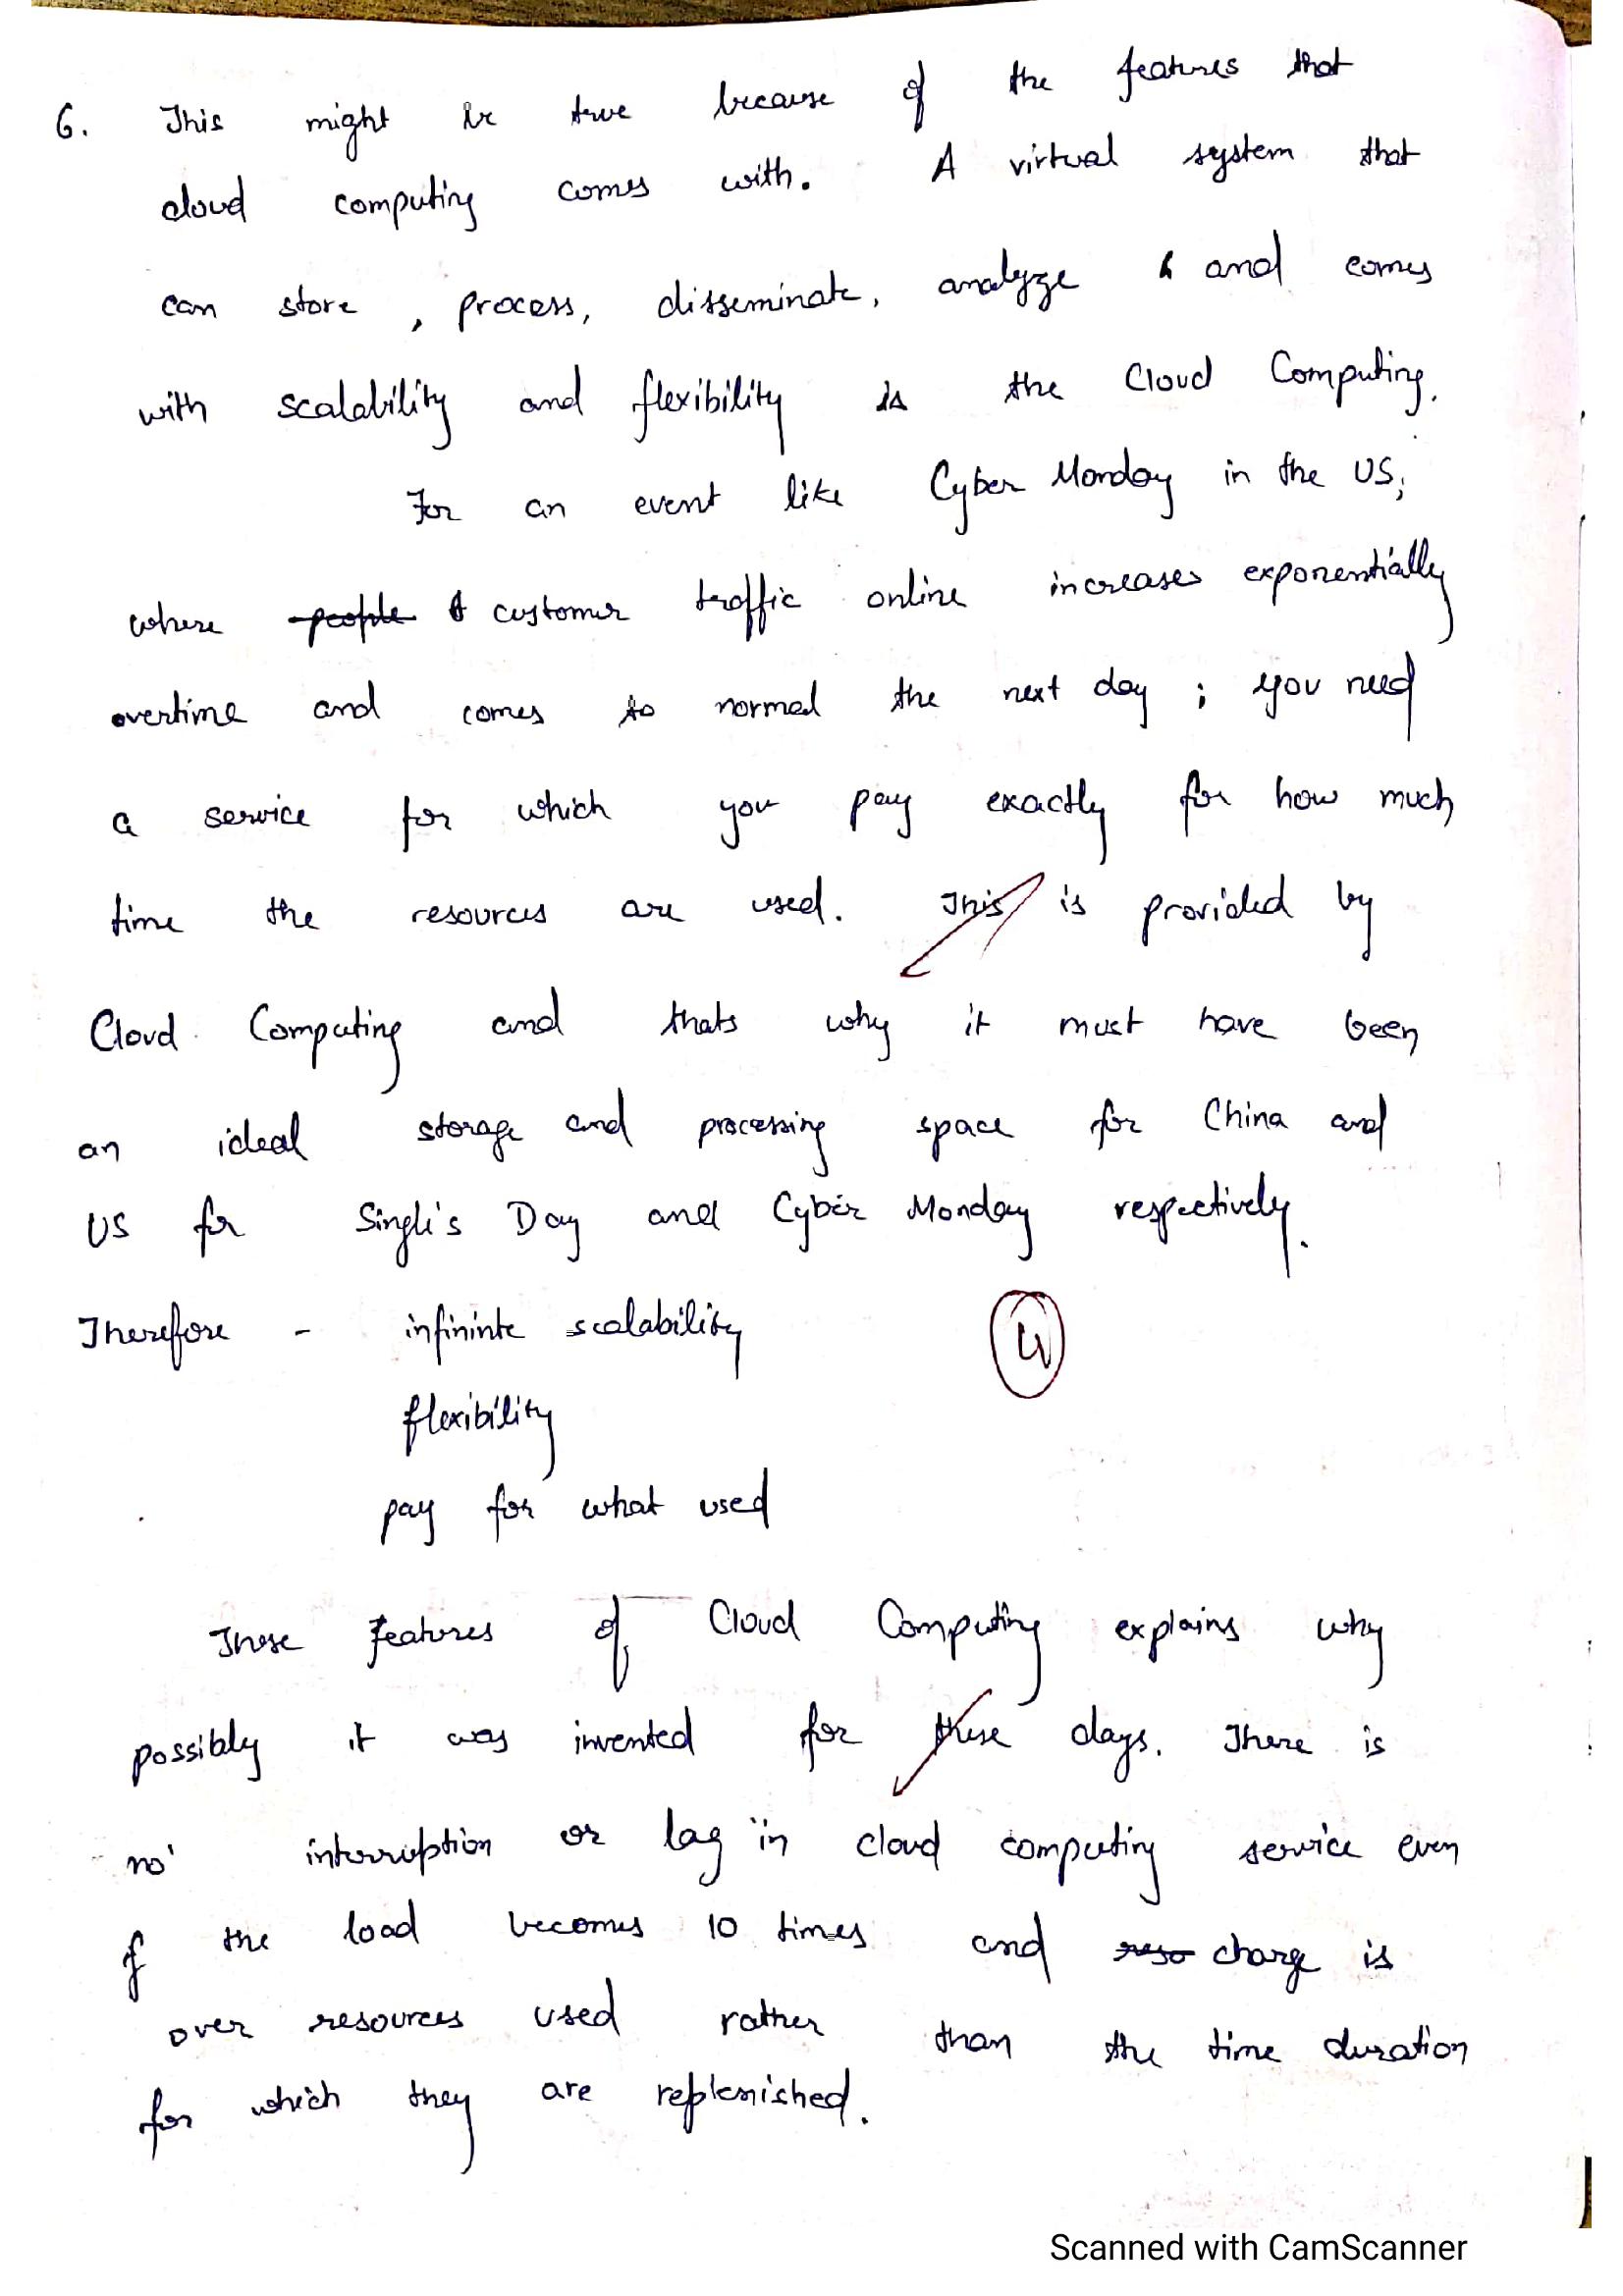 6. This might be true because of the features that
cloud computing comes with. A virtual system that
can store, process, disseminate, analyze and comes
with scalability and flexibility is the Cloud Computing.
For an event like Cyber Monday in the US,
where people customer traffic online increases exponentially
overtime and comes to normal the next day; you need
a service for which you pay exactly for how much
time the resources are used. This is provided by
Cloud Computing and thats why it must have been
an ideal storage and processing space for China and
US for Single's Day and Cyber Monday respectively.
Therefore - infininte scalability
4
flexibility
pay for what used
These features of Cloud Computing explains why
possibly it was invented for these days. There is
no interruption or lag in cloud computing service even
if the load becomes 10 times and reso charge is
over resources used rather than the time duration
for which they are replenished.
Scanned with CamScanner